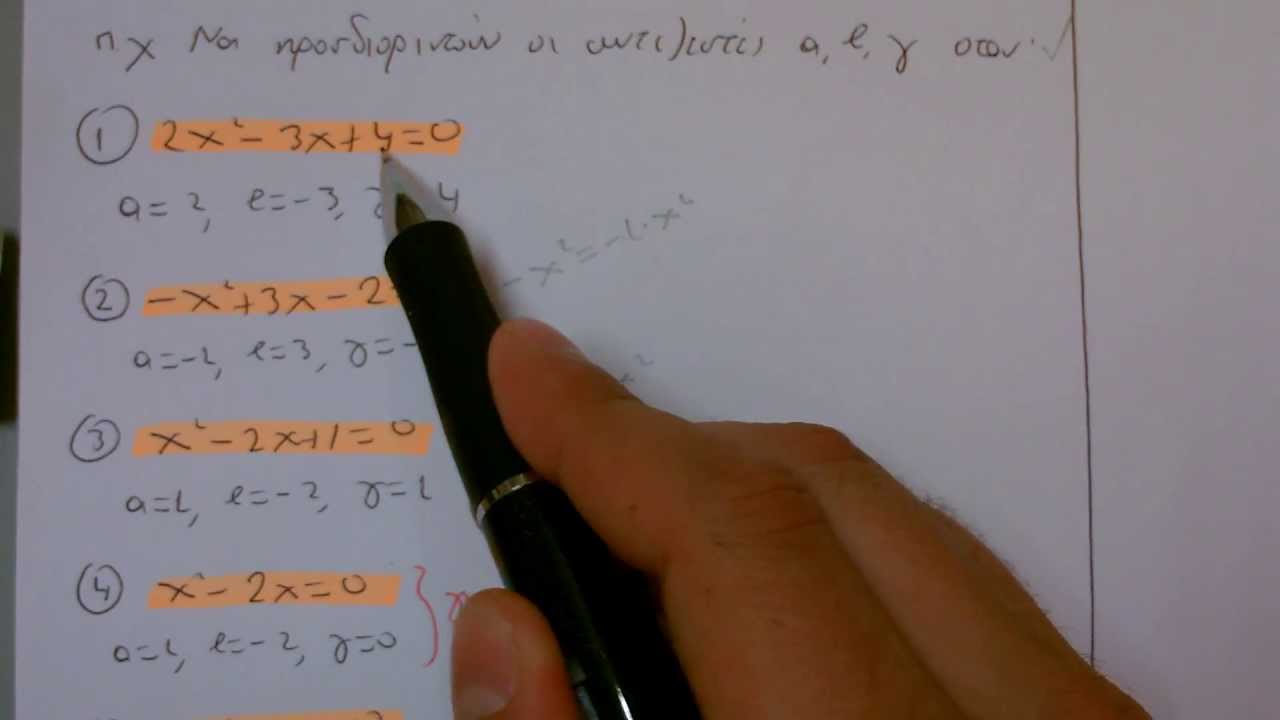 π.χ Να προσδιοριστούν οι συντελεστές α, β, γ όταν:
① 2x²-3x+4=0
α=2, β=-3, γ 4
② -x²+3x-2
-x²=-1·x²
α=-1, β=3, γ=-
x²
③ x²-2x+1=0
α=1, β=-2, γ=1
④ x²-2x=0
α=1, β=-2, γ=0